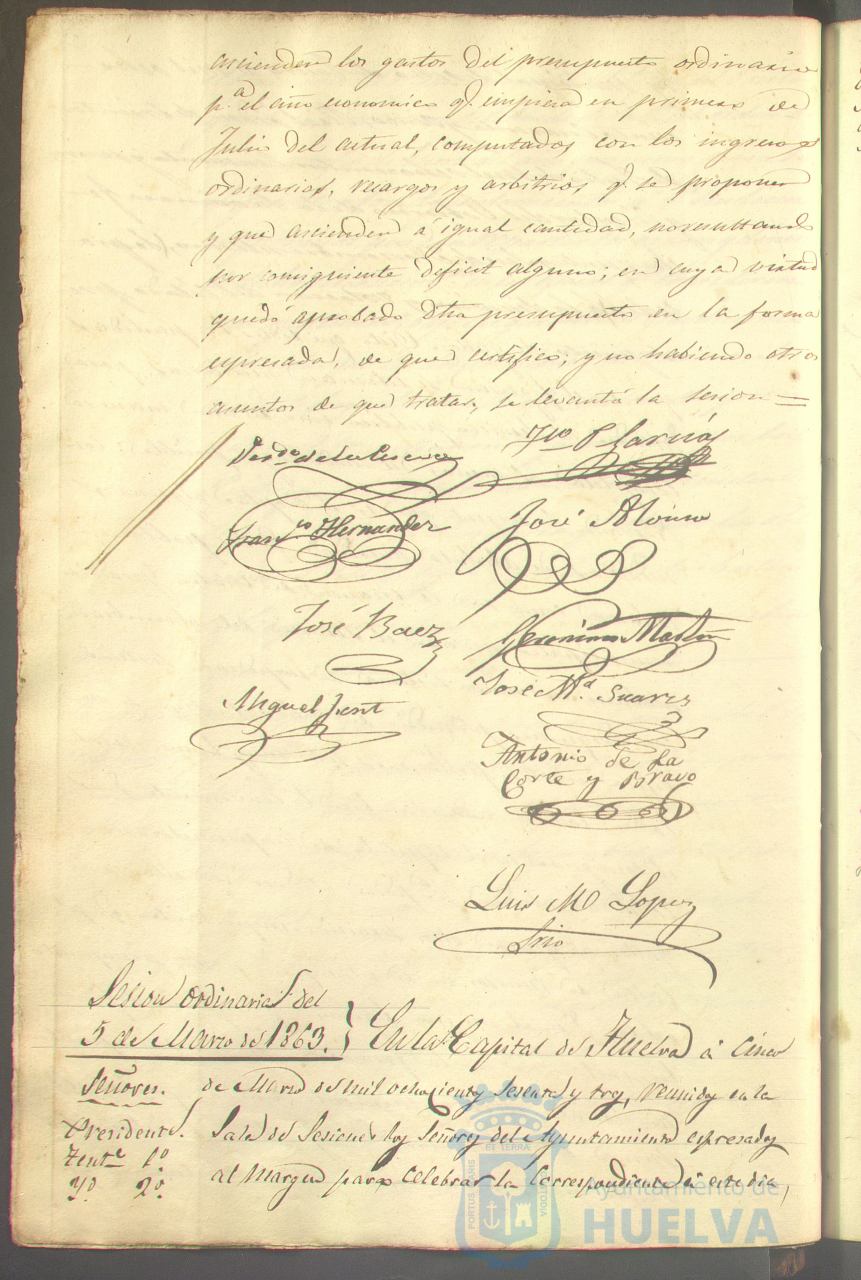 ascienden los gastos del presupuesto ordinario
p.ª el año economico q.e empieza en primero de
Julio del actual, computados con los ingresos
ordinarios, recargos y arbitrios q.e se proponen
y que ascienden á igual cantidad, no resultando
por consiguiente deficit alguno; en cuya virtud
quedó aprobado dho presupuesto en la forma
espresada, de que certifico; y no habiendo otros
asuntos de que tratar, se levantó la sesion=
de la Cueva
Garcia
Fran.co Hernandez
José Alonso
José Baez
Geronimo Martin
José M.ª Suarez
Miguel
Antonio de la
Corte y Bravo
Luis M Lopez
Srio
Sesion ordinaria del
5 de Marzo de 1863.
En la Capital de Huelva á cinco
Señores.
de Marzo de mil ochocientos sesenta y tres, reunidos en la
Presidente.
Sala de Sesiones los Señores del Ayuntamiento espresados
Tent.e 1.º
al margen para celebrar la correspondiente á este dia,
Y.º 2.º
PORTUS MARIS ET TERRÆ CUSTODIA
Ayuntamiento de
HUELVA